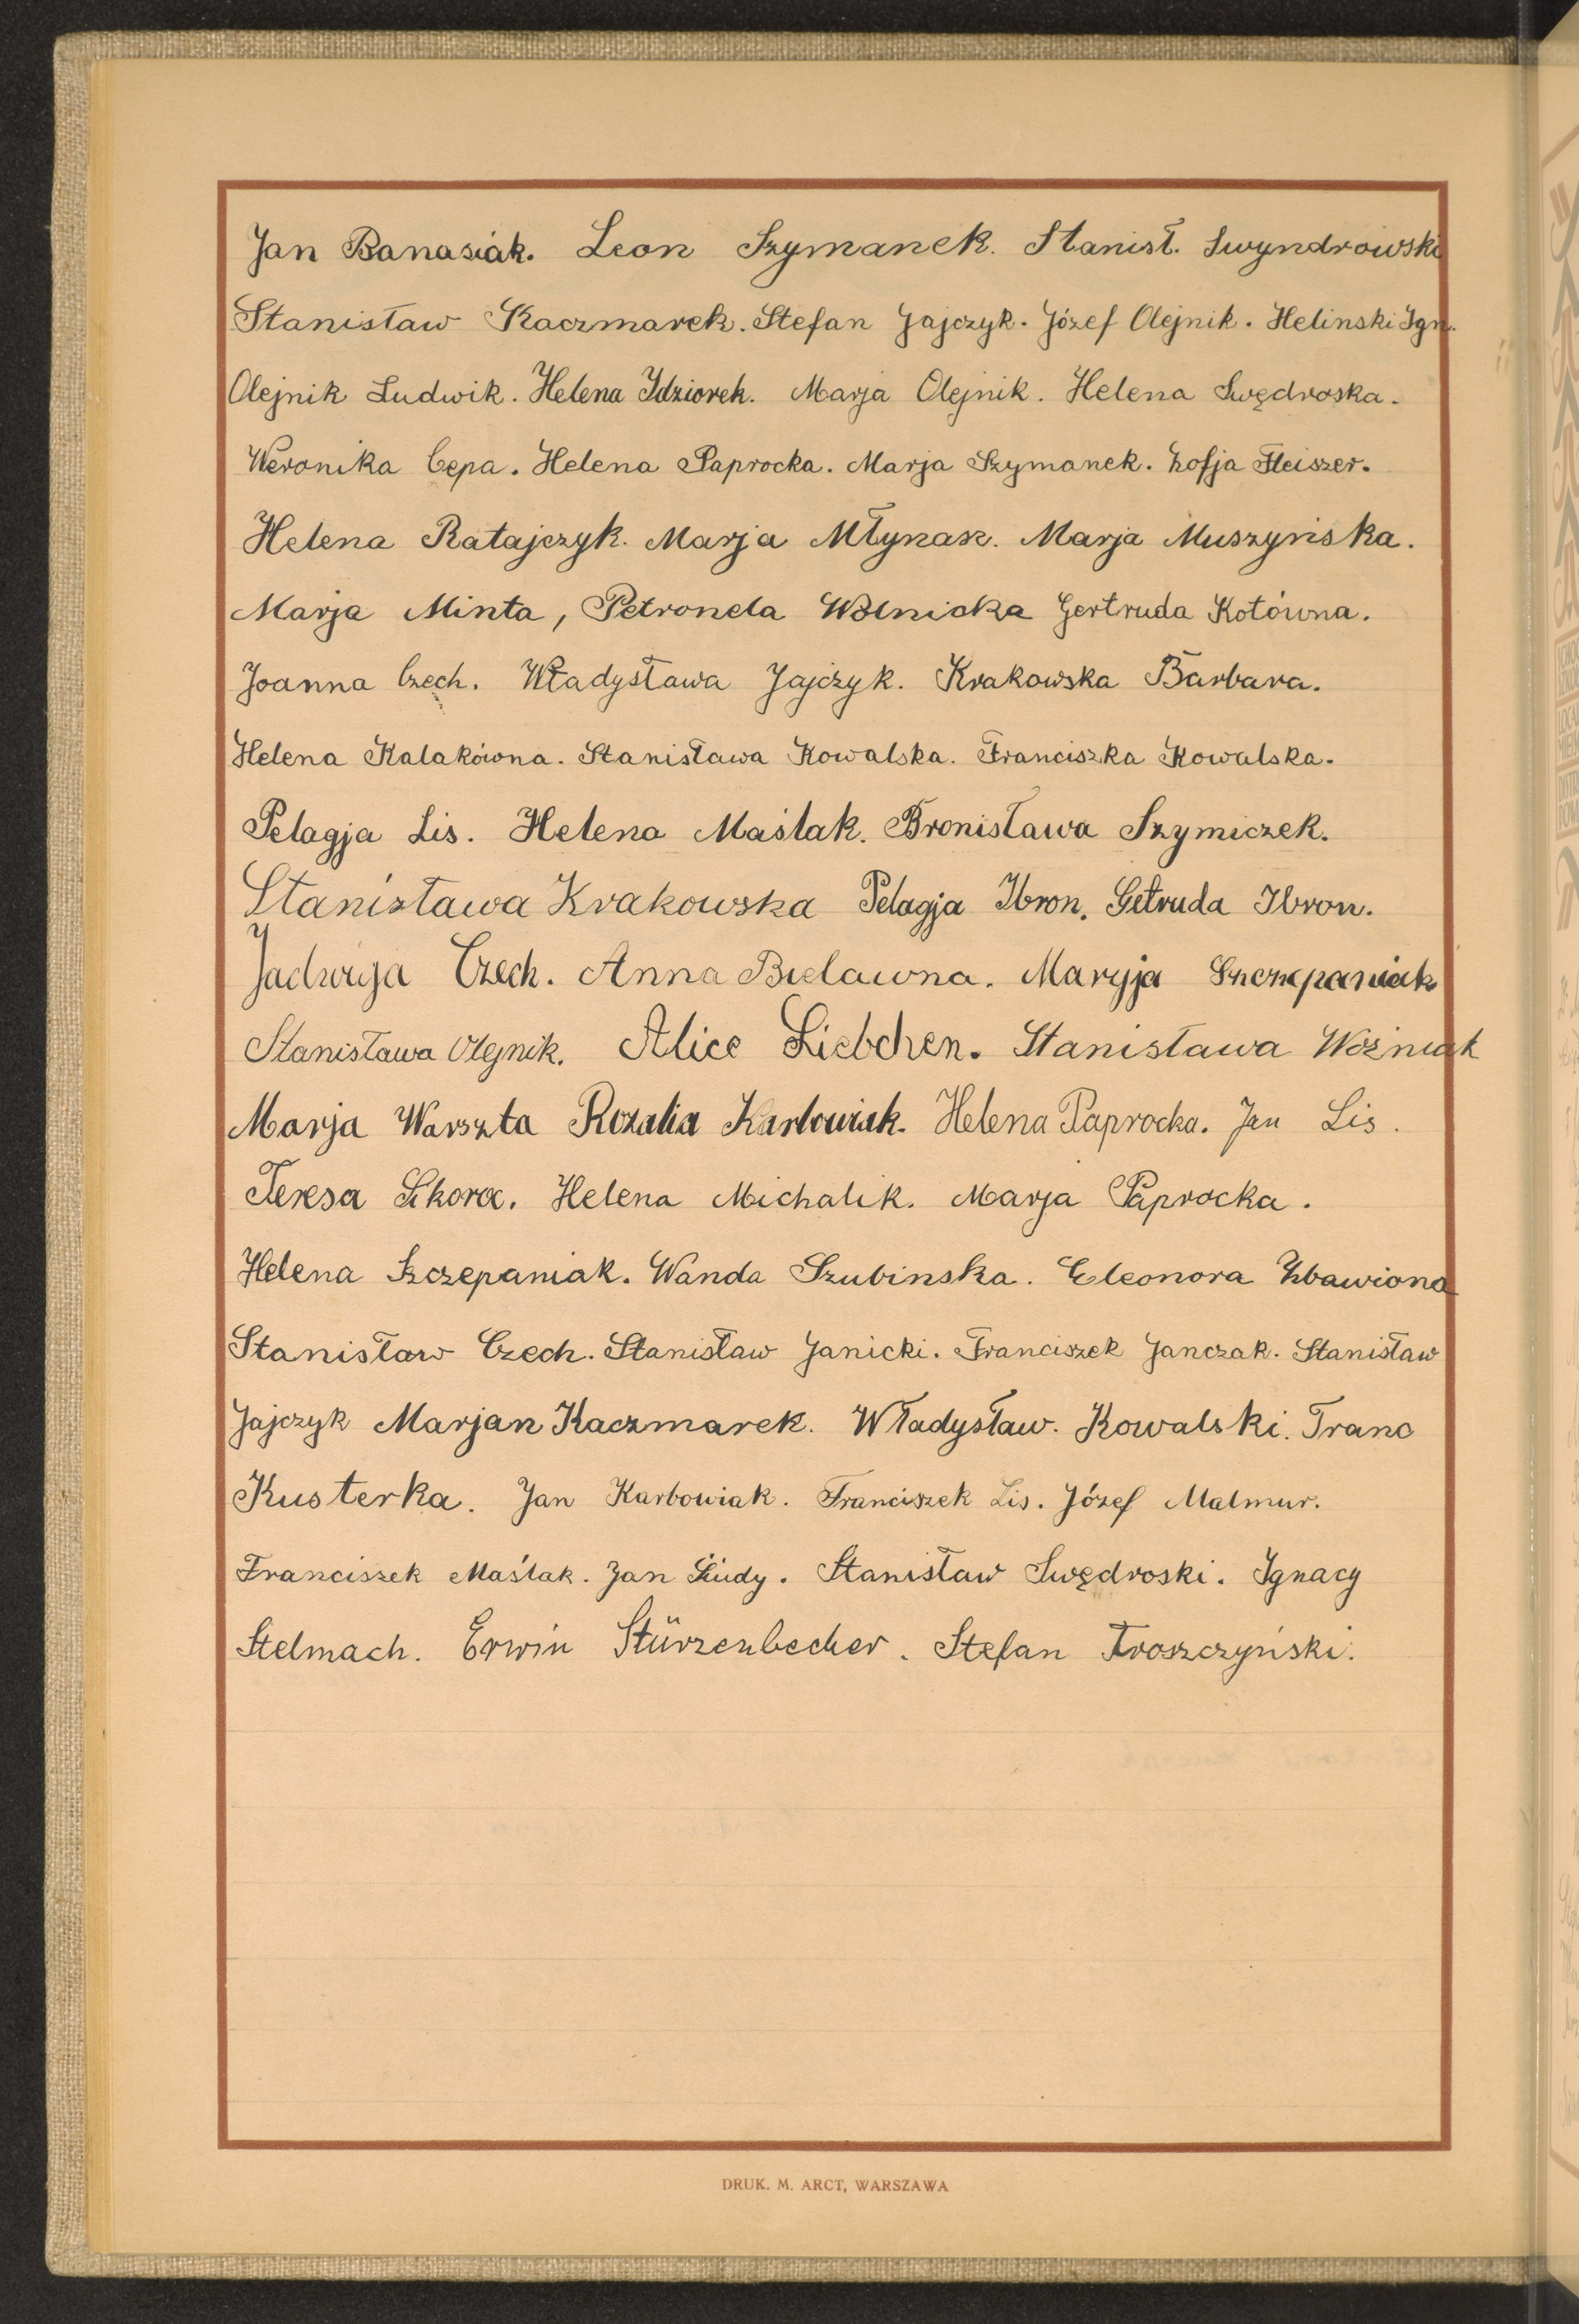 Jan Banasiak. Leon Szymanek. Stanisł. Swyndrowski
Stanisław Kaczmarek. Stefan Jajczyk. Józef Olejnik. Helinski Ign.
Olejnik Ludwik. Helena Idziorek. Marja Olejnik. Helena Swędroska.
Weronika Cepa. Helena Paprocka. Marja Szymanek. Zofja Fleiszer.
Helena Ratajczyk. Marja Młynarz. Marja Muszyńska.
Marja Minta, Petronela Wolnicka Gertruda Kotówna.
Joanna Czech. Władysława Jajczyk. Krakowska Barbara.
Helena Kalakówna. Stanisława Kowalska. Franciszka Kowalska.
Pelagja Lis. Helena Maślak. Bronisława Szymiczek.
Stanisława Krakowska Pelagja Ibron. Getruda Ibron.
Jadwiga Czech. Anna Bielawna. Maryja Szczepaniak
Stanisława Olejnik. Alice Liebchen. Stanisława Woźniak
Marja Warszta Rozalia Karbowiak. Helena Paprocka. Jan Lis.
Teresa Sikora. Helena Michalik. Marja Paprocka.
Helena Szczepaniak. Wanda Szubinska. Eleonora Zbawiona
Stanisław Czech. Stanisław Janicki. Franciszek Janczak. Stanisław
Jajczyk Marjan Kaczmarek. Władysław. Kowalski. Franc
Kusterka. Jan Karbowiak. Franciszek Lis. Józef Malmur.
Franciszek Maślak. Jan Stanisław Swędroski. Ignacy
Stelmach. Erwin Stürzenbecher. Stefan Troszczyński.
DRUK. M. ARCT, WARSZAWA